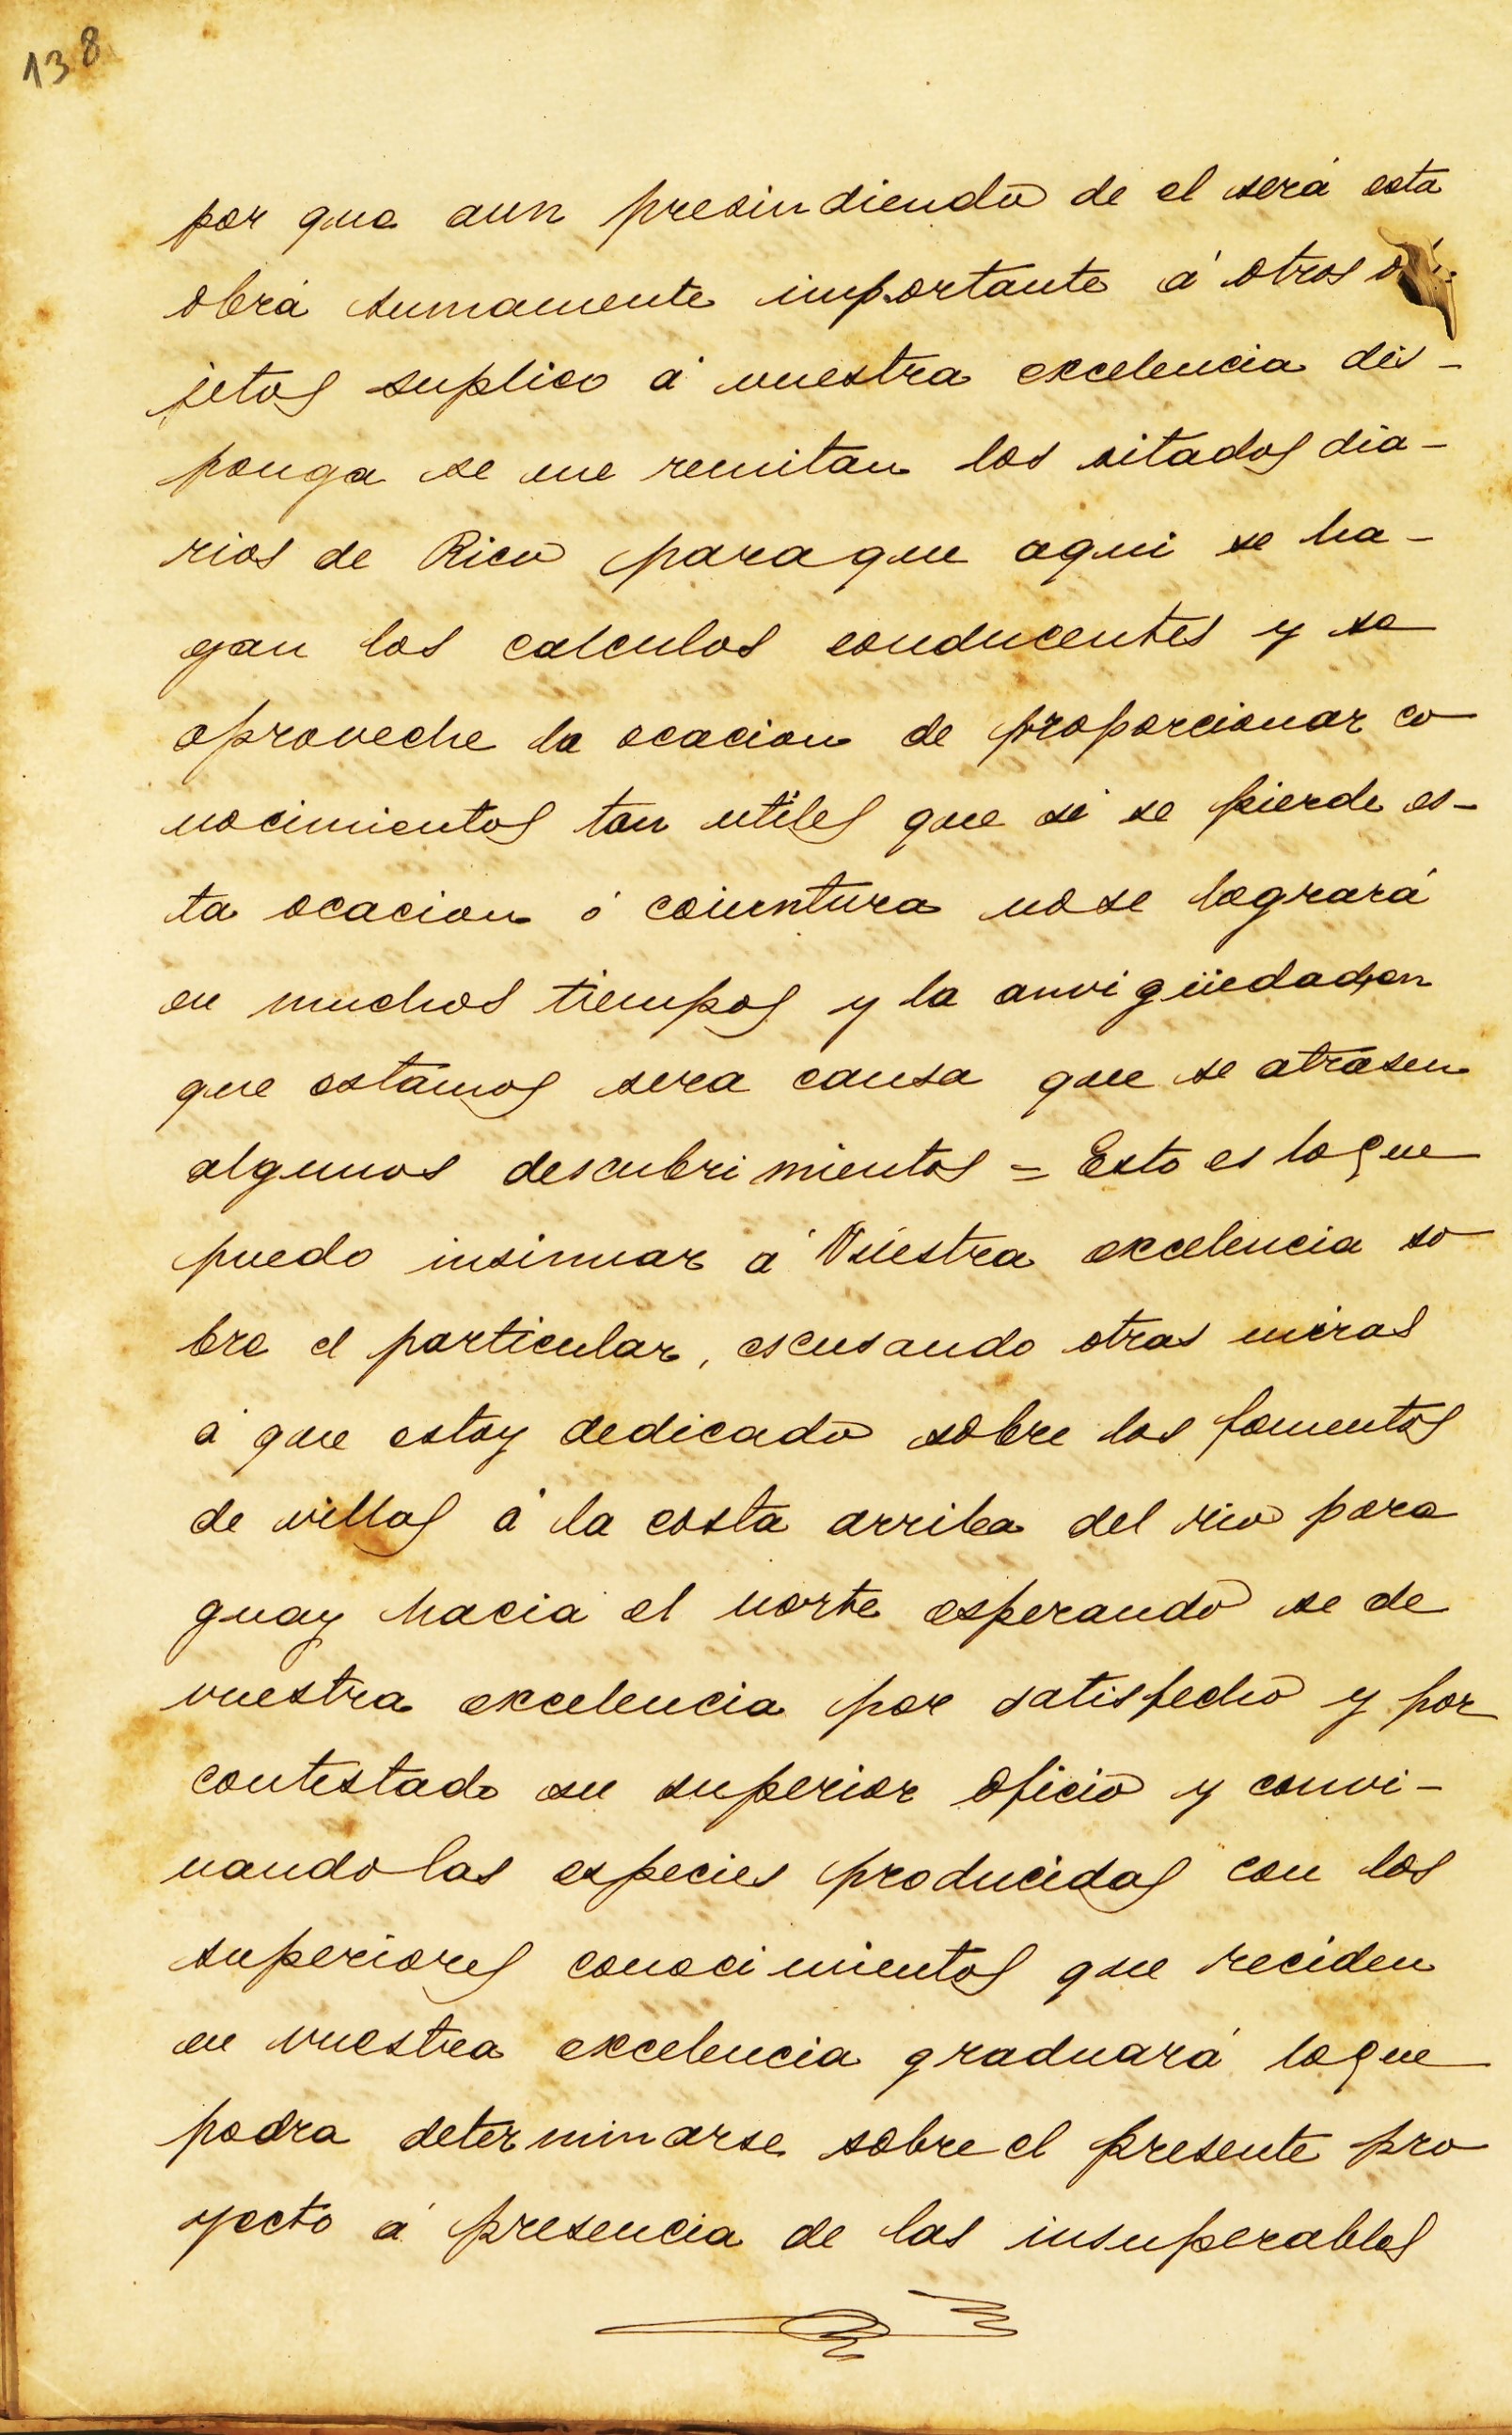 138
por que aun presindiendo de el será esta
obra sumamente importante á otros
jetos suplico á vuestra excelencia dis-
ponga se me remitan los sitados dia-
rios de Rico paraque aqui se ha-
gan los calculos conducentes y se
aproveche la ocacion de proporcionar co
nocimientos tan utiles que si se pierde es-
ta ocacion ó couentura nose logrará
en muchos tiempos y la anvigüedad en
que estamos sera causa que se atrasen
algunos descubrimientos = Esto es loque
puedo insinuar á Vuestra excelencia so
bre el particular, escusando otras miras
á que estoy dedicado sobre los fomentos
de villas á la costa arriba del rio para
guay hacia el norte esperando se de
vuestra excelencia por satisfecho y por
contestado su superior oficio y convi-
nando las especies producidas con los
superiores conocimientos que reciden
en vuestra excelencia graduará loque
podra determinarse sobre el presente pro
yecto á presencia de las insuperables